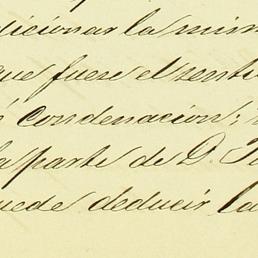 dicionar la mim
que fuese el senti
é condenacion;
la parte de D. J
uede deducir la